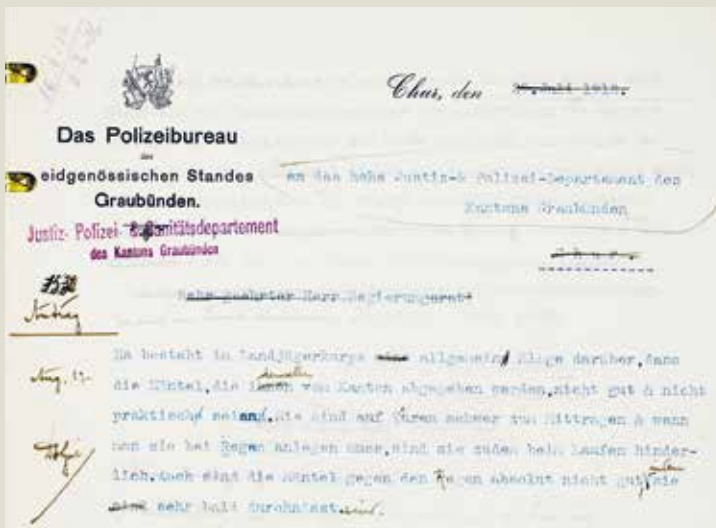 Chur, den 25. Juli 1912.
Das Polizeibureau
des
eidgenössischen Standes
Graubünden.
an das hohe Justiz-& Polizei-Departement des
Kantons Graubünden
Chur.
Justiz- Polizei- & Sanitätsdepartement
des Kantons Graubünden
Antrag
Sehr geehrter Herr Regierungsrat!
Aug. 12.
Es besteht in Landjägerkorps eine allgemeine Klage darüber, dass
die Mäntel, die ihnen denselben von Kanton abgegeben werden, nicht gut & nicht
praktisch seien. Sie sind auf Touren schwer zum Mittragen & wenn
man sie bei Regen anlegen muss, sind sie zudem beim Laufen hinder-
lich. Auch sind die Mäntel gegen den Regen absolut nicht gut, sie
sind sehr bald durchnässt sind.